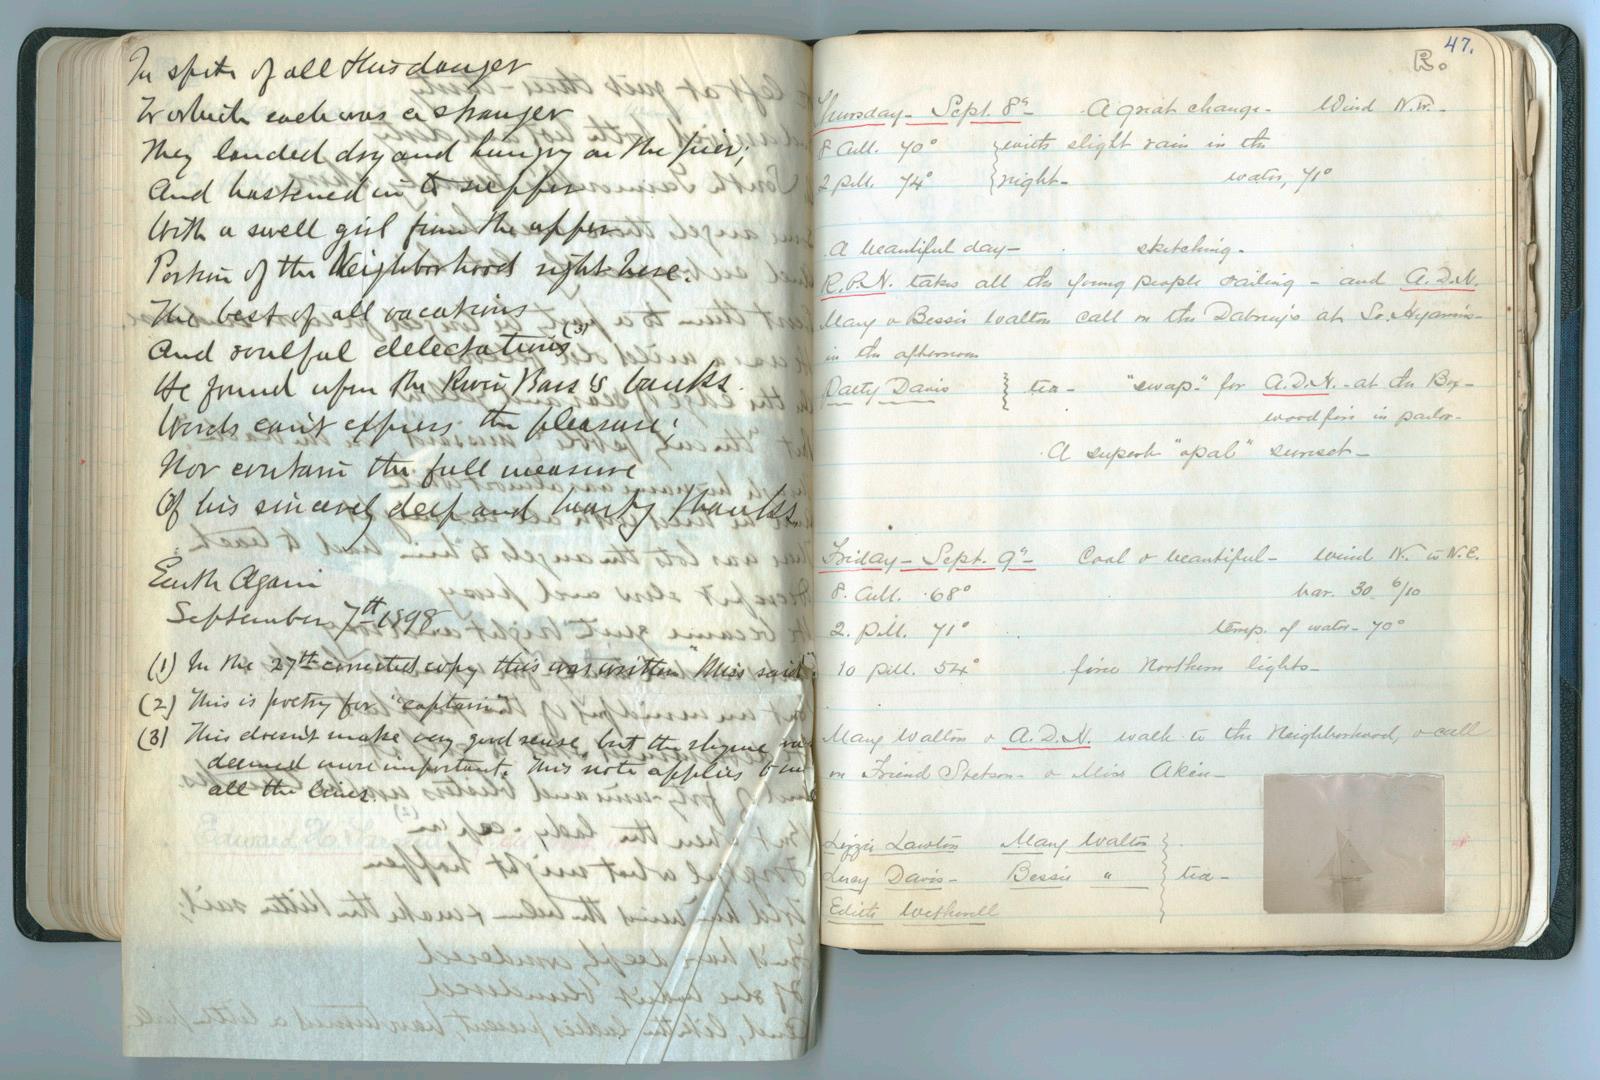 In spite of all this danger
To which each was a stranger
They landed dry and hungry on the pier;
And hastened in to supper
With a swell girl from the upper
Portion of the Neighborhood right here.
The best of all vacations
And soulful delectations (3)
He found upon the River Bass's banks.
Words can't express the pleasure;
Nor contain the full measure
Of his sincerely deep and hearty thanks.
Earth Again
September 7th 1898
(1) In the 27th corrected copy this was written "Miss said"
(2) This is poetry for "captain"
(3) This doesn't make very good sense, but the rhyme was
deemed more important. This note applies to
all the lines.
47.
R.
Thursday - Sept. 8th - A great change - Wind N.W. -
8 A.M. 70° with slight rain in the
2 P.M. 74° night - water, 71°
A beautiful day - sketching -
R.B.N. takes all the young people sailing - and A.D.N.
Mary & Bessie Walton call on the Dabney's at So. Hyannis -
in the afternoon
Patty Davis tea - "swap" for A.D.N. - at the Box-
wood fire in parlor -
A superb "opal" sunset -
Friday - Sept. 9th - Cool & beautiful - wind N. to N.E.
8. A.M. 68° bar. 30 6/10
2. P.M. 71° temp. of water - 70°
10 P.M. 54° fine Northern lights -
Mary Walton & A.D.N. walk to the Neighborhood, & call
on Friend Stetson - & Miss Akin -
Lizzie Lawton Mary Walton
Lucy Davis - Bessie " tea -
Edith Wetherell